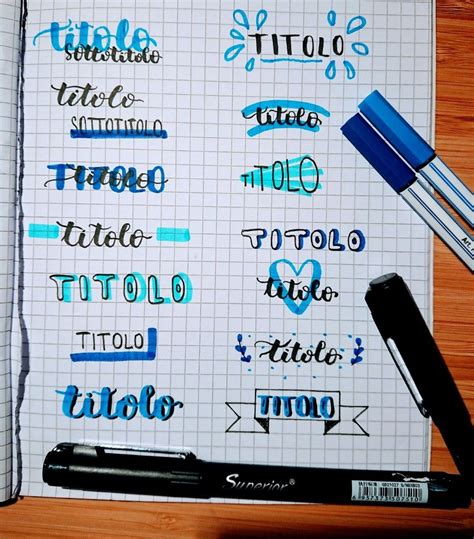 titolo
sottotitolo
titolo
SOTTOTITOLO
TITOLO
titolo
titolo
TITOLO
TITOLO
titolo
TITOLO
titolo
TITOLO
TITOLO
titolo
titolo
TITOLO
Superior